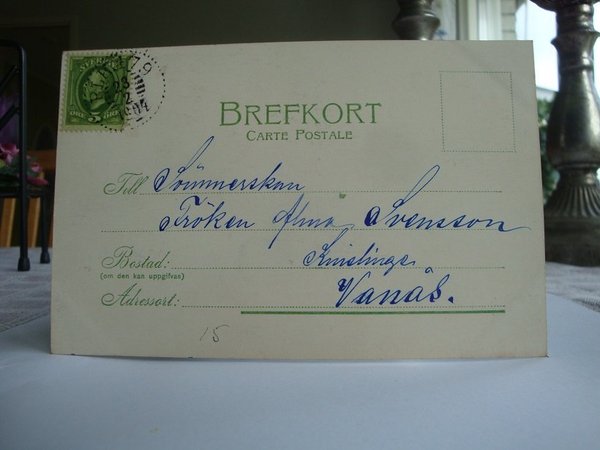 SVERIGE
5 ÖRE
BREFKORT
CARTE POSTALE
Till Sömmerskan
Fröken Alma Svensson
Bostad: Knislinge
(om den kan uppgifvas)
Adressort: Vanås.
15